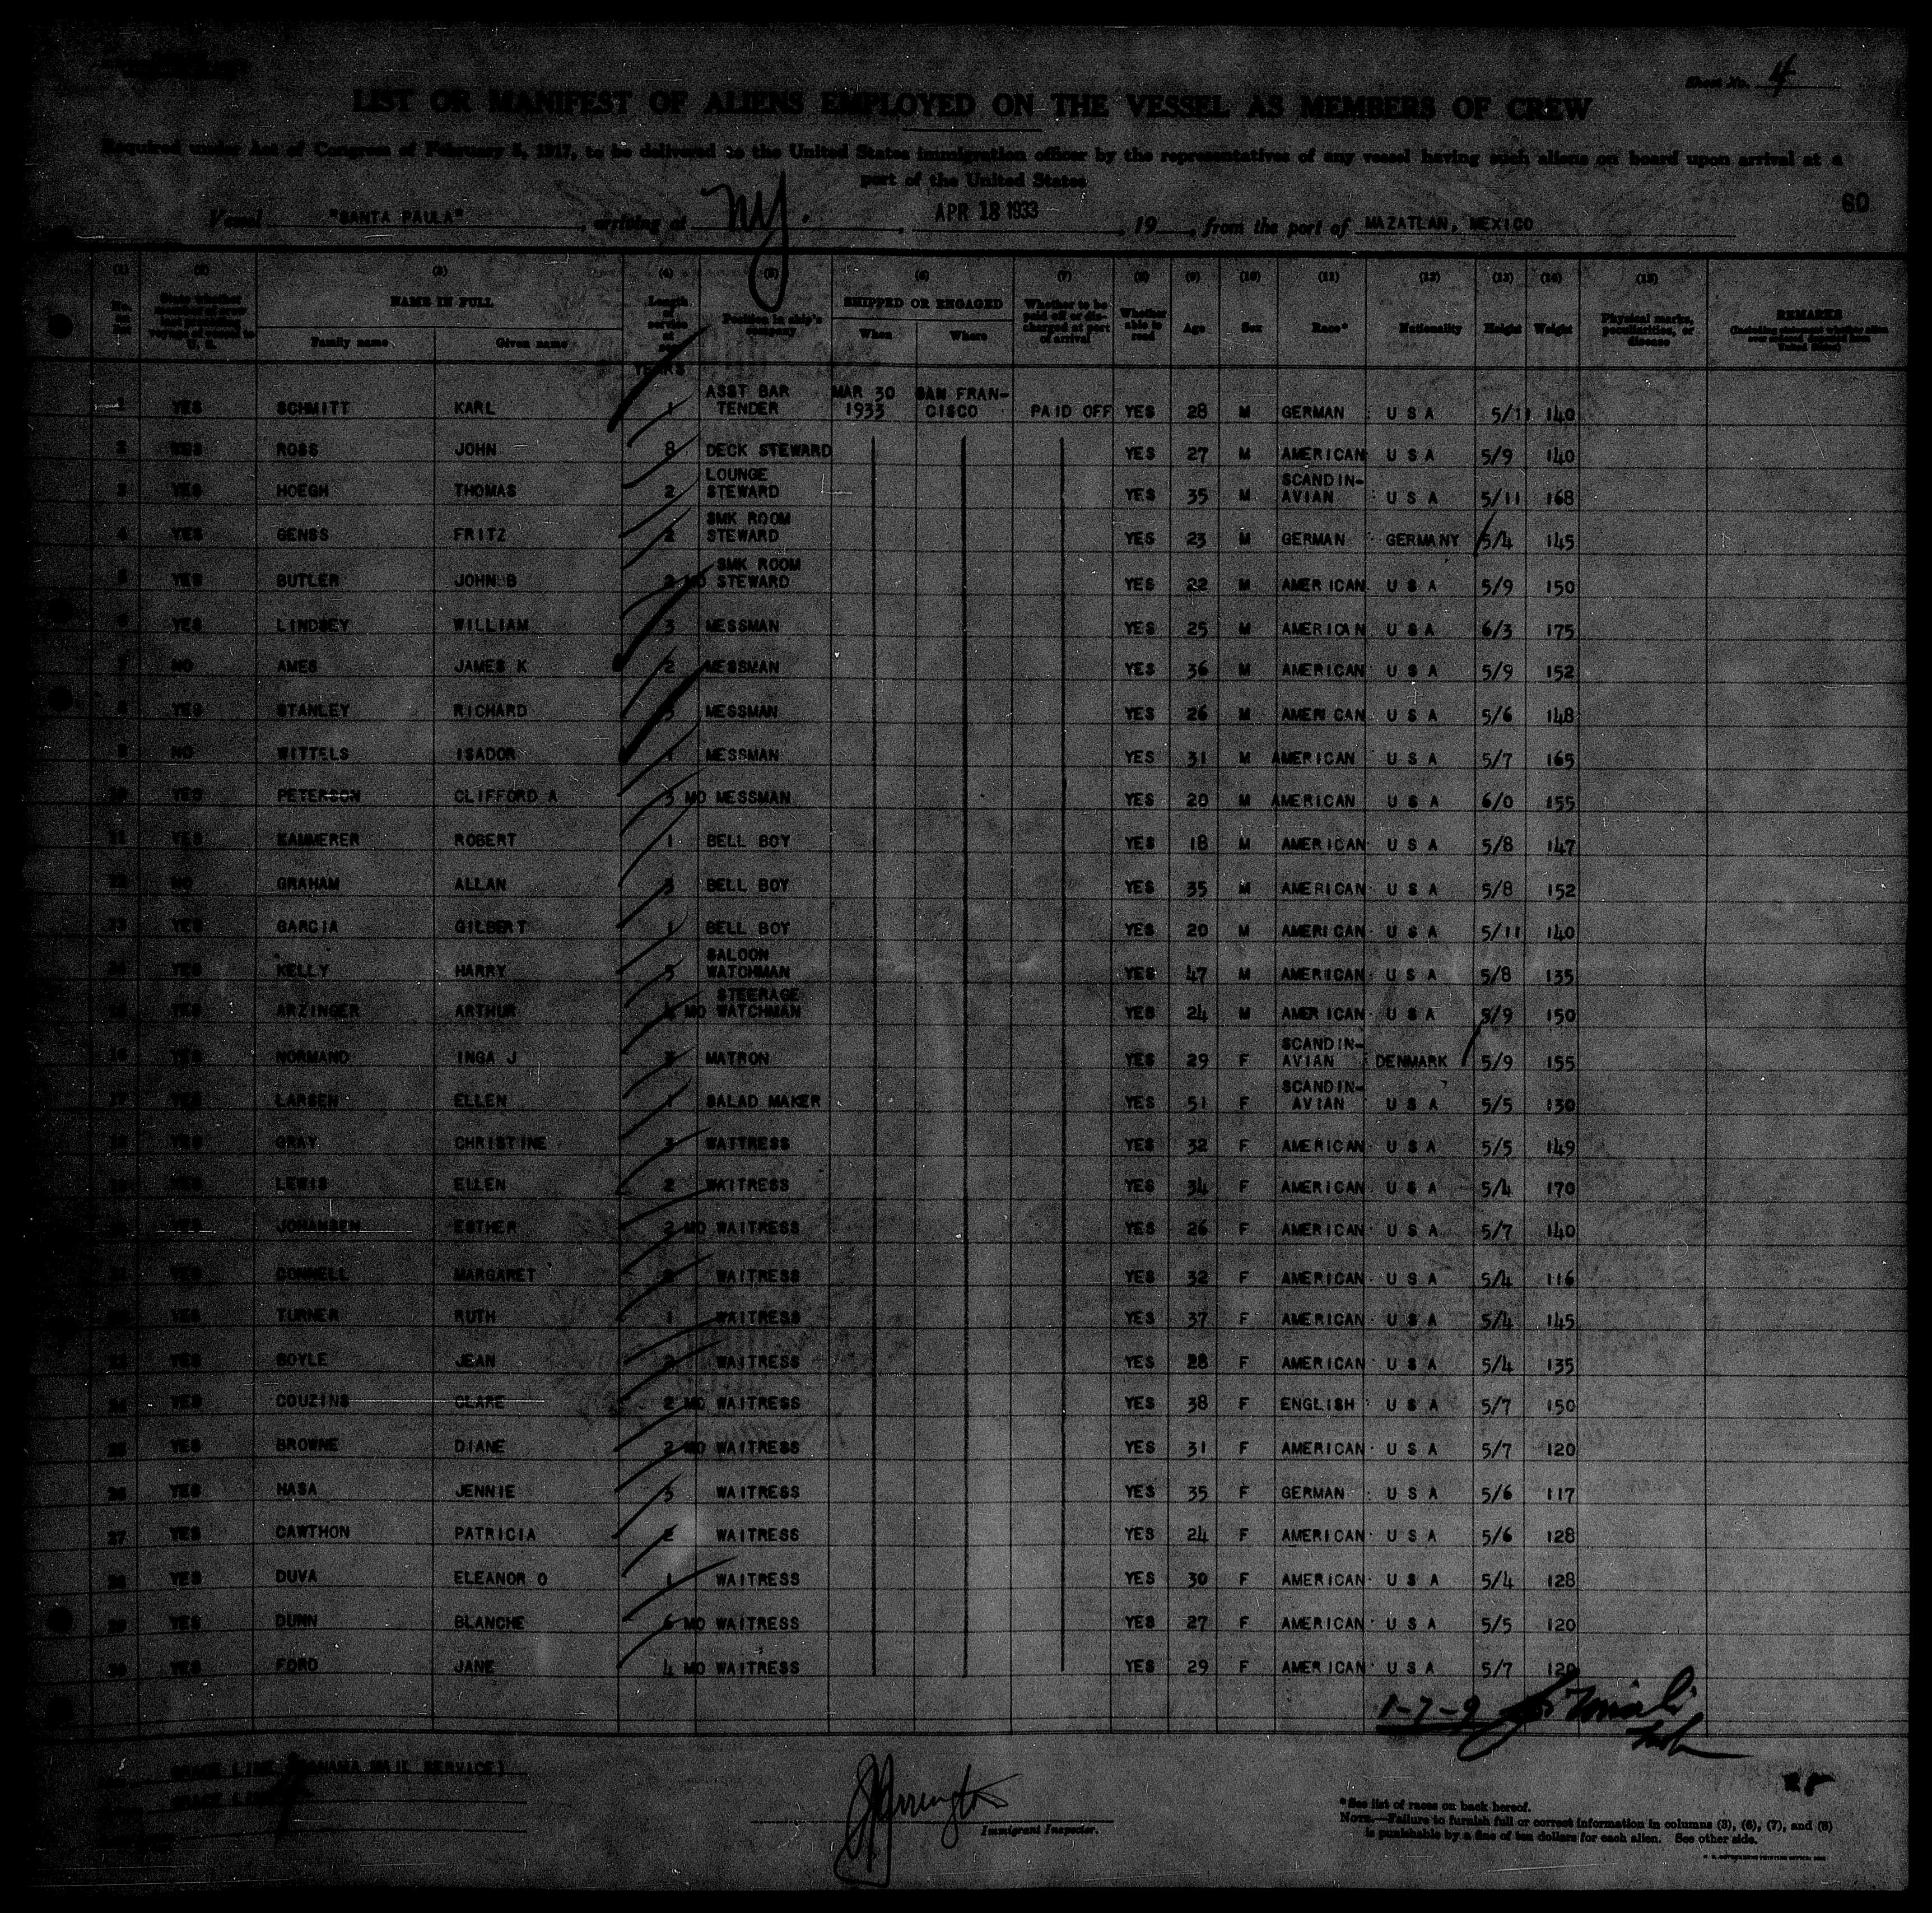 Sheet No. 4
LIST OR MANIFEST OF ALIENS EMPLOYED ON THE VESSEL AS MEMBERS OF CREW
Required under Act of Congress of February 5, 1917, to be delivered to the United States immigration officer by the representatives of any vessel having such aliens on board upon arrival at a
port of the United States
60
Vessel "SANTA PAULA", arriving at NY., APR 18 1933, 19 , from the port of MAZATLAN, MEXICO
(1) (2) (3) (4) (5) (6) (7) (8) (9) (10) (11) (12) (13) (14) (15)
No. on list State whether NAME IN FULL Family name Given name Length of service at sea Position in ship's company SHIPPED OR ENGAGED When Where Whether to be paid off or discharged at port of arrival Whether able to read Age Sex Race* Nationality Height Weight Physical marks, peculiarities, or disease REMARKS
YEARS
1 YES SCHMITT KARL 1 ASST BAR TENDER MAR 30 1933 SAN FRANCISCO PAID OFF YES 28 M GERMAN U S A 5/11 140
2 YES ROSS JOHN 8 DECK STEWARD YES 27 M AMERICAN U S A 5/9 140
3 YES HOEGH THOMAS 2 LOUNGE STEWARD YES 35 M SCANDIN-AVIAN U S A 5/11 168
4 YES GENSS FRITZ 2 SMK ROOM STEWARD YES 23 M GERMAN GERMANY 5/4 145
5 YES BUTLER JOHN B 2 MO SMK ROOM STEWARD YES 22 M AMERICAN U S A 5/9 150
6 YES LINDSEY WILLIAM 3 MESSMAN YES 25 M AMERICAN U S A 6/3 175
7 NO AMES JAMES K 2 MESSMAN YES 36 M AMERICAN U S A 5/9 152
8 YES STANLEY RICHARD 3 MESSMAN YES 26 M AMERICAN U S A 5/6 148
9 NO WITTELS ISADOR 1 MESSMAN YES 31 M AMERICAN U S A 5/7 165
10 YES PETERSON CLIFFORD A 3 MO MESSMAN YES 20 M AMERICAN U S A 6/0 155
11 YES KAMMERER ROBERT 1 BELL BOY YES 18 M AMERICAN U S A 5/8 147
12 NO GRAHAM ALLAN 3 BELL BOY YES 35 M AMERICAN U S A 5/8 152
13 YES GARCIA GILBERT 1 BELL BOY YES 20 M AMERICAN U S A 5/11 140
14 YES KELLY HARRY 5 SALOON WATCHMAN YES 47 M AMERICAN U S A 5/8 135
15 YES ARZINGER ARTHUR MO STEERAGE WATCHMAN YES 24 M AMERICAN U S A 5/9 150
16 YES NORMAND INGA J MATRON YES 29 F SCANDIN-AVIAN DENMARK 5/9 155
17 YES LARSEN ELLEN 1 SALAD MAKER YES 51 F SCANDIN-AVIAN U S A 5/5 130
18 YES GRAY CHRISTINE 3 WATTRESS YES 32 F AMERICAN U S A 5/5 149
19 YES LEWIS ELLEN 2 WAITRESS YES 34 F AMERICAN U S A 5/4 170
20 YES JOHANSEN ESTHER 2 MO WAITRESS YES 26 F AMERICAN U S A 5/7 140
21 YES CONNELL MARGARET WAITRESS YES 32 F AMERICAN U S A 5/4 116
22 YES TURNER RUTH 1 WAITRESS YES 37 F AMERICAN U S A 5/4 145
23 YES BOYLE JEAN 2 WAITRESS YES 28 F AMERICAN U S A 5/4 135
24 YES COUZINS CLARE 2 MO WAITRESS YES 38 F ENGLISH U S A 5/7 150
25 YES BROWNE DIANE 2 MO WAITRESS YES 31 F AMERICAN U S A 5/7 120
26 YES HASA JENNIE 5 WAITRESS YES 35 F GERMAN U S A 5/6 117
27 YES CAWTHON PATRICIA 2 WAITRESS YES 24 F AMERICAN U S A 5/6 128
28 YES DUVA ELEANOR O 1 WAITRESS YES 30 F AMERICAN U S A 5/4 128
29 YES DUNN BLANCHE 6 MO WAITRESS YES 27 F AMERICAN U S A 5/5 120
30 YES FORD JANE 4 MO WAITRESS YES 29 F AMERICAN U S A 5/7 120
1-7-9
GRACE LINE (PANAMA MAIL SERVICE)
GRACE LINE
Immigrant Inspector.
*See list of races on back hereof.
NOTE.—Failure to furnish full or correct information in columns (3), (6), (7), and (8)
is punishable by a fine of ten dollars for each alien. See other side.